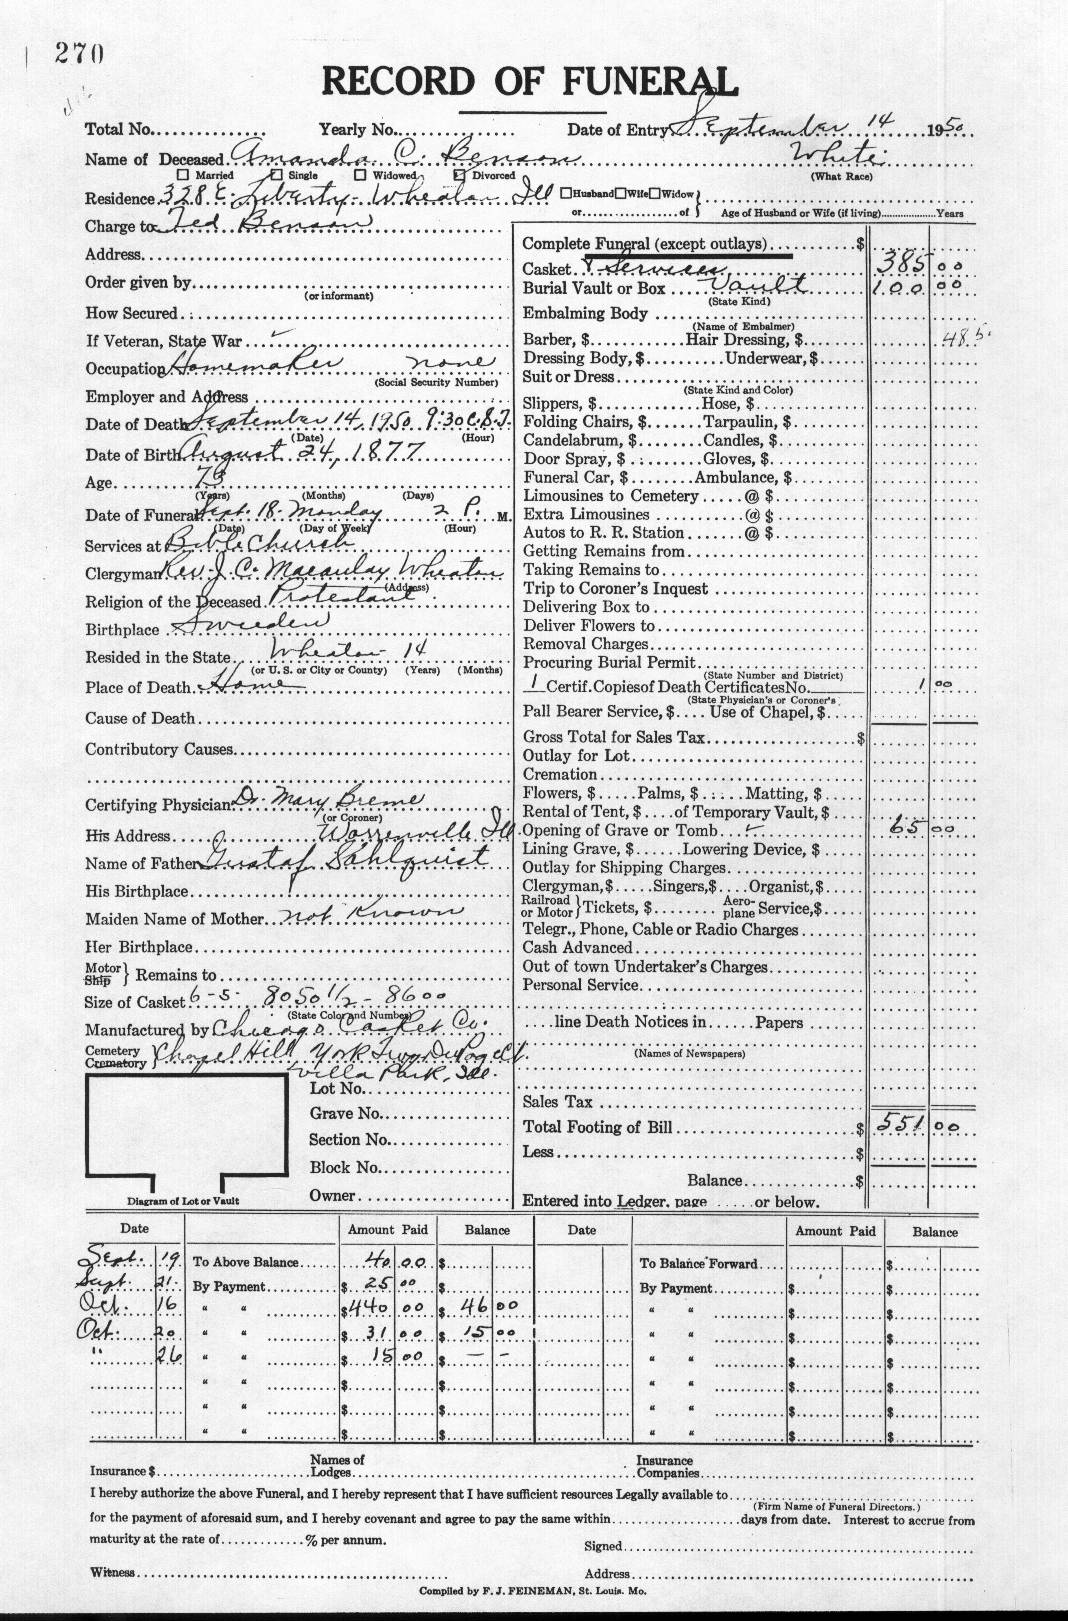 270
RECORD OF FUNERAL
Total No. Yearly No. Date of Entry September 14 1950
Name of Deceased Amanda C. Benson White
Married Single Widowed Divorced (What Race)
Residence 328 E. Liberty - Wheaton Ill Husband Wife Widow
or of Age of Husband or Wife (if living) Years
Charge to Ted Benson
Address
Order given by
(or informant)
How Secured
If Veteran, State War
Occupation Homemaker none
(Social Security Number)
Employer and Address
Date of Death September 14, 1950 9:30 C.S.T.
(Date) (Hour)
Date of Birth August 24, 1877
Age 73
(Years) (Months) (Days)
Date of Funeral Sept. 18- Monday 2 P. M.
(Date) (Day of Week) (Hour)
Services at Bible Church
Clergyman Rev. J. C. Macaulay Wheaton
(Address)
Religion of the Deceased Protestant
Birthplace Sweden
Resided in the State Wheaton 14
(or U. S. or City or County) (Years) (Months)
Place of Death Home
Cause of Death
Contributory Causes
Certifying Physician Dr. Mary Breme
(or Coroner)
His Address Warrenville Ill
Name of Father Gustaf Sahlquist
His Birthplace
Maiden Name of Mother not known
Her Birthplace
Motor
Ship } Remains to
Size of Casket 6-5 8050 1/2 - 8600
(State Color and Number)
Manufactured by Chicago Casket Co.
Cemetery
Crematory } Chapel Hill York Twp. DuPage Ct.
Villa Park, Ill.
Lot No.
Grave No.
Section No.
Block No.
Owner
Diagram of Lot or Vault
Complete Funeral (except outlays) $
Casket & Services 385 00
Burial Vault or Box Vault 100 00
(State Kind)
Embalming Body
(Name of Embalmer)
Barber, $ Hair Dressing, $ 485.
Dressing Body, $ Underwear, $
Suit or Dress
(State Kind and Color)
Slippers, $ Hose, $
Folding Chairs, $ Tarpaulin, $
Candelabrum, $ Candles, $
Door Spray, $ Gloves, $
Funeral Car, $ Ambulance, $
Limousines to Cemetery @ $
Extra Limousines @ $
Autos to R. R. Station @ $
Getting Remains from
Taking Remains to
Trip to Coroner's Inquest
Delivering Box to
Deliver Flowers to
Removal Charges
Procuring Burial Permit
(State Number and District)
1 Certif. Copies of Death Certificates No. 1 00
(State Physician's or Coroner's
Pall Bearer Service, $ Use of Chapel, $
Gross Total for Sales Tax $
Outlay for Lot
Cremation
Flowers, $ Palms, $ Matting, $
Rental of Tent, $ of Temporary Vault, $
Opening of Grave or Tomb 65 00
Lining Grave, $ Lowering Device, $
Outlay for Shipping Charges
Clergyman, $ Singers, $ Organist, $
Railroad
or Motor } Tickets, $ Aero-
plane Service, $
Telegr., Phone, Cable or Radio Charges
Cash Advanced
Out of town Undertaker's Charges
Personal Service
line Death Notices in Papers
(Names of Newspapers)
Sales Tax
Total Footing of Bill $ 551 00
Less $
Balance $
Entered into Ledger, page or below.
Date Amount Paid Balance Date Amount Paid Balance
Sept. 19 To Above Balance 40 00 $ To Balance Forward $
Sept. 21. By Payment $ 25 00 $ By Payment $ $
Oct. 16 " " $ 440 00 $ 46 00 " " $ $
Oct. 20 " " $ 31 00 $ 15 00 " " $ $
" 26 " " $ 15 00 $ - - " " $ $
" " $ $ " " $ $
" " $ $ " " $ $
" " $ $ " " $ $
Insurance $ Names of
Lodges Insurance
Companies
I hereby authorize the above Funeral, and I hereby represent that I have sufficient resources Legally available to
(Firm Name of Funeral Directors.)
for the payment of aforesaid sum, and I hereby covenant and agree to pay the same within days from date. Interest to accrue from
maturity at the rate of % per annum.
Signed
Witness Address
Compiled by F. J. FEINEMAN, St. Louis. Mo.